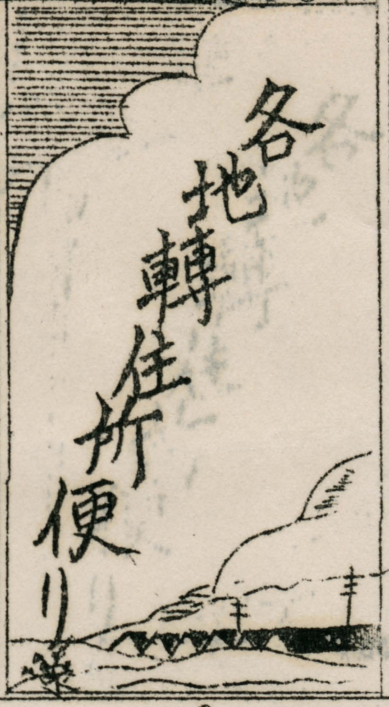 各地轉住所便り